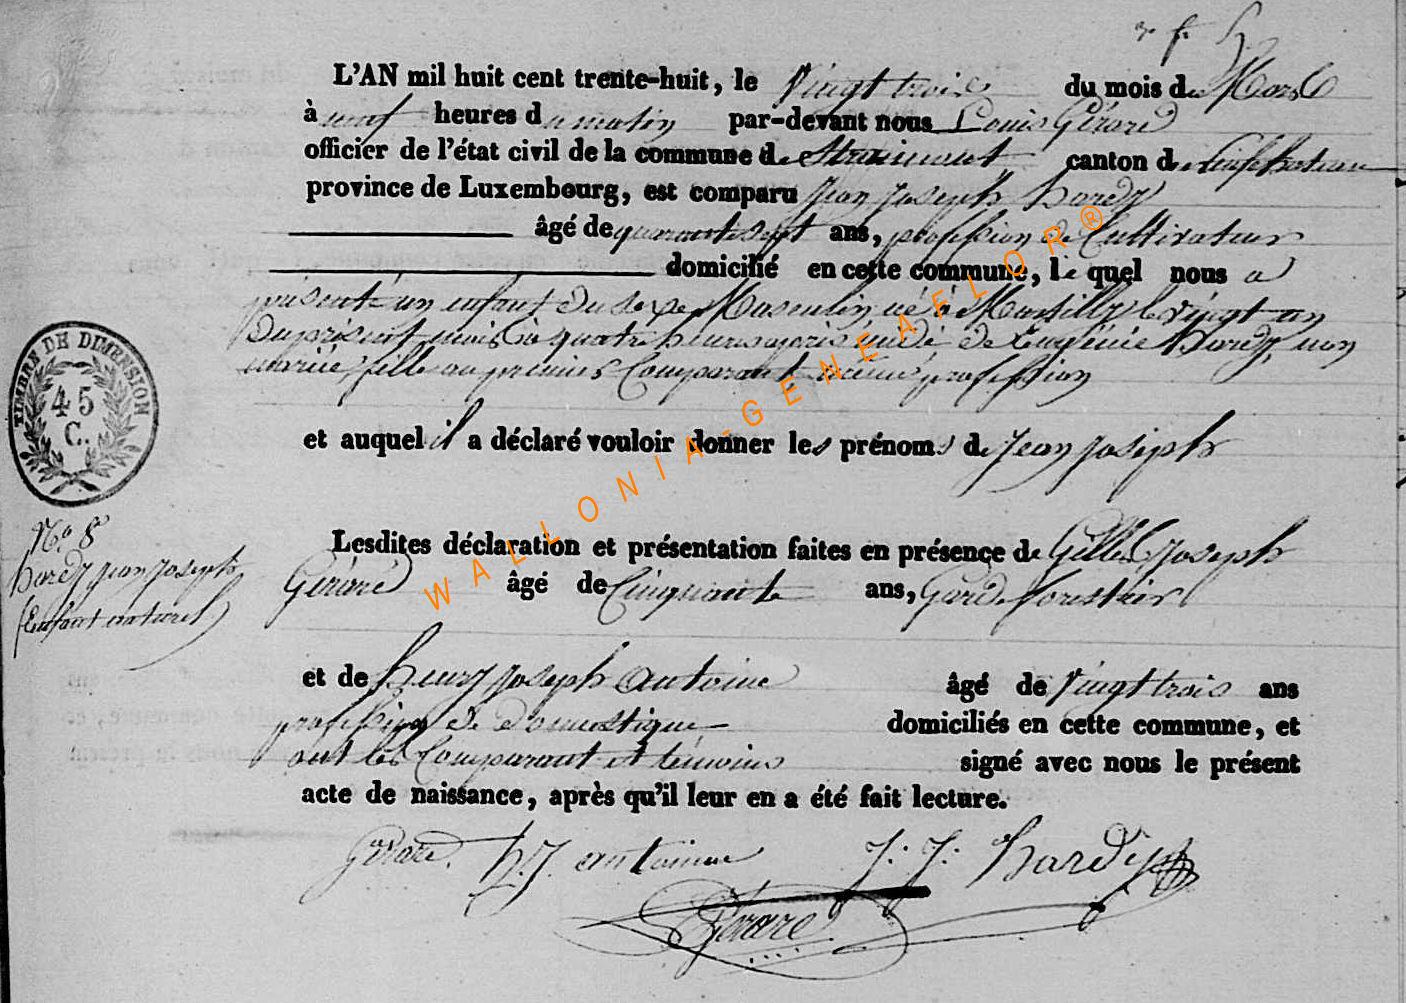 L'AN mil huit cent trente-huit, le vingt trois du mois de Mars
à neuf heures du matin par-devant nous Louis Gérard
officier de l'état civil de la commune de Straimont canton de neufchateau
province de Luxembourg, est comparu Jean Joseph hardy
âgé de quarante sept ans, profession de Cultivateur
domicilié en cette commune, lequel nous a
présenté un enfant du sexe Masculin né à Martilly le vingt un
du présent mois à quatre heures après midi de Eugénie hardy, non
mariée, fille au premier Comparant même profession
et auquel il a déclaré vouloir donner les prénoms de Jean Joseph
TIMBRE DE DIMENSION
45
C.
No. 8
hardy jean joseph
Enfant naturel
Lesdites déclaration et présentation faites en présence de Gilles Joseph
Gérard âgé de Cinquante ans, Garde forestier
et de henry joseph antoine âgé de vingt trois ans
profession de domestique domiciliés en cette commune, et
ont les Comparant et témoins signé avec nous le présent
acte de naissance, après qu'il leur en a été fait lecture.
Gérard. h. J. antoine J. J. hardy
Gérard
WALLONIA-GENEAFLOR®